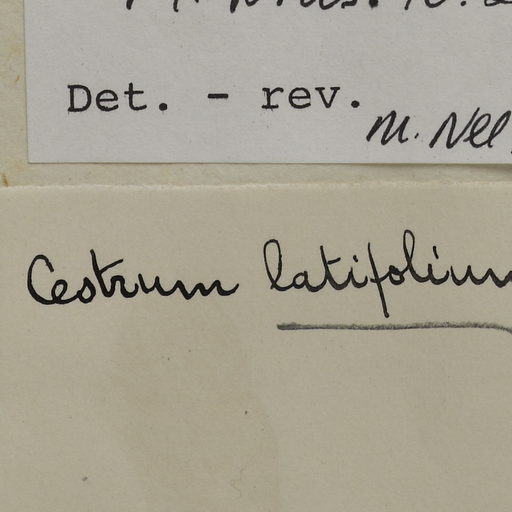 Det. - rev.
M. Nee
Cestrum latifolium